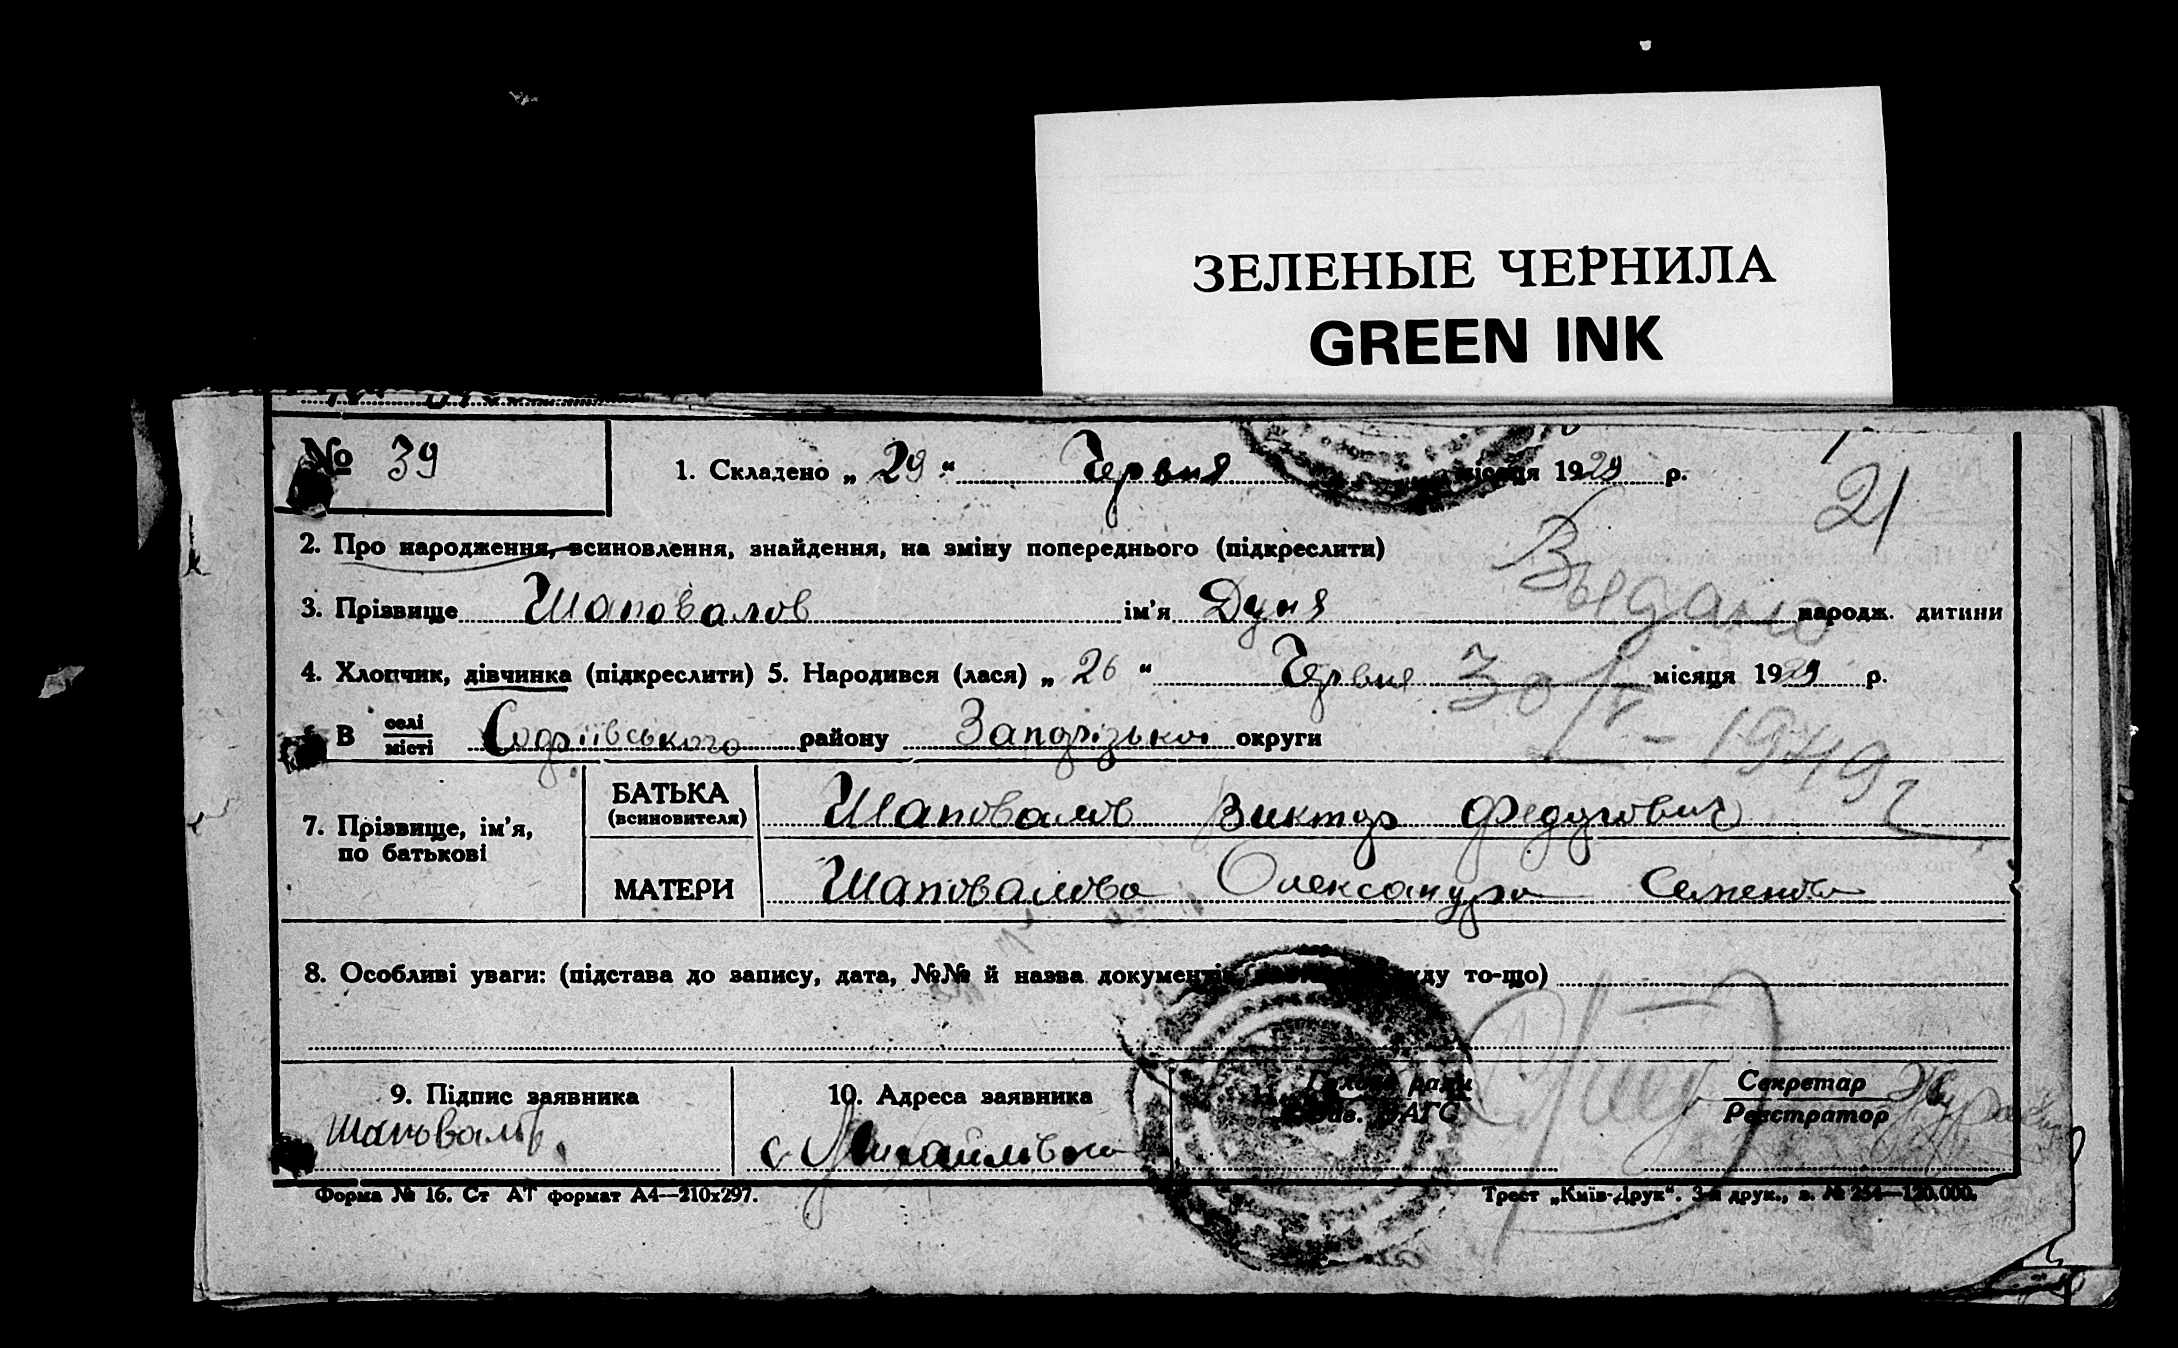 ЗЕЛЕНЫЕ ЧЕРНИЛА
GREEN INK
№ 39
1. Складено „ 29 “ Червня місяця 1929 р.
21
2. Про народження, всиновлення, знайдення, на зміну попереднього (підкреслити)
Выдано
3. Прізвище Шаповалов ім’я Дуня народж. дитини
4. Хлопчик, дівчинка (підкреслити) 5. Народився (лася) „ 26 “ Червня місяця 1929 р.
30/IV – 1949 г
В селі/місті Софіївського району Запорізької округи
7. Прізвище, ім’я, по батькові
БАТЬКА (всиновителя) Шаповалов Виктор Федорович
МАТЕРИ Шаповалова Олександра Семенова
8. Особливі уваги: (підстава до запису, дата, №№ й назва документів, то-що)
9. Підпис заявника
10. Адреса заявника
Голова ради
Зав. ЗАГС
Секретар
Реєстратор
Шаповалов
с Михайлівка
Форма № 16. Ст АТ формат А4—210х297.
Трест „Київ-Друк“. 3-я друк., з. № 254—120.000.